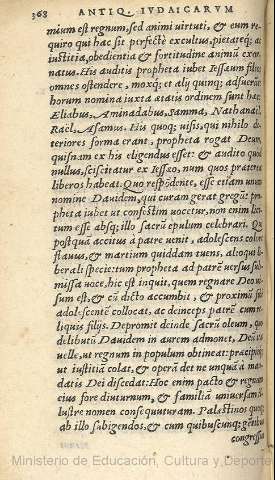 368 ANTIQ. IVDAICARVM
mium est regnum, sed animi virtuti, & eum re-
quiro qui hac sit perfectè excultus, pietateq; ac
iustitia, obedientia & fortitudine animũ exor-
natus. His auditis propheta iubet Iessæum filios
omnes ostendere, moxq; et alij quinq; adsuere
horum nomina iuxta ætatis ordinem sunt hæc
Eliabus, Aminadabus, Samma, Nathanaël,
Raël, Asamus. His quoq; visis, qui nihilo de-
teriores forma erant, propheta rogat Deum
quisnam ex his eligendus esset: & audito quod
nullus, sciscitatur ex Iessæo, num quos præterea
liberos habeat. Quo respõdente, esse etiam unum
nomine Dauidem, qui curam gerat gregũ: pro-
pheta iubet ut confestim uocetur, non enim lici-
tum esse absq; illo sacrũ epulum celebrari. Qui
postquã accitus à patre uenit, adolescens colore
flauus, & martium quiddam tuens, alioqui li-
berali specie: tum propheta ad patrẽ uersus sub-
missa uoce, hic est inquit, quem regnare Deo vi-
sum est, & cũ dicto accumbit, & proximũ sibi
adolescentẽ collocat, ac deinceps patrẽ cum re-
liquis filijs. Depromit deinde sacrũ oleum, quo
delibutũ Dauidem in aurem admonet, Deũ ita
uelle, ut regnum in populum obtineat: præcipitq;
ut iustitiã colat, & operã det ne unquã à man-
datis Dei discedat: Hoc enim pacto & regnum
eius fore diuturnum, & familiã uniuersam il-
lustre nomen consequuturam. Palæstinos quoq;
ab illo subigendos, & cum quibuscunq; gentibus
congressus
Ministerio de Educación, Cultura y Deporte